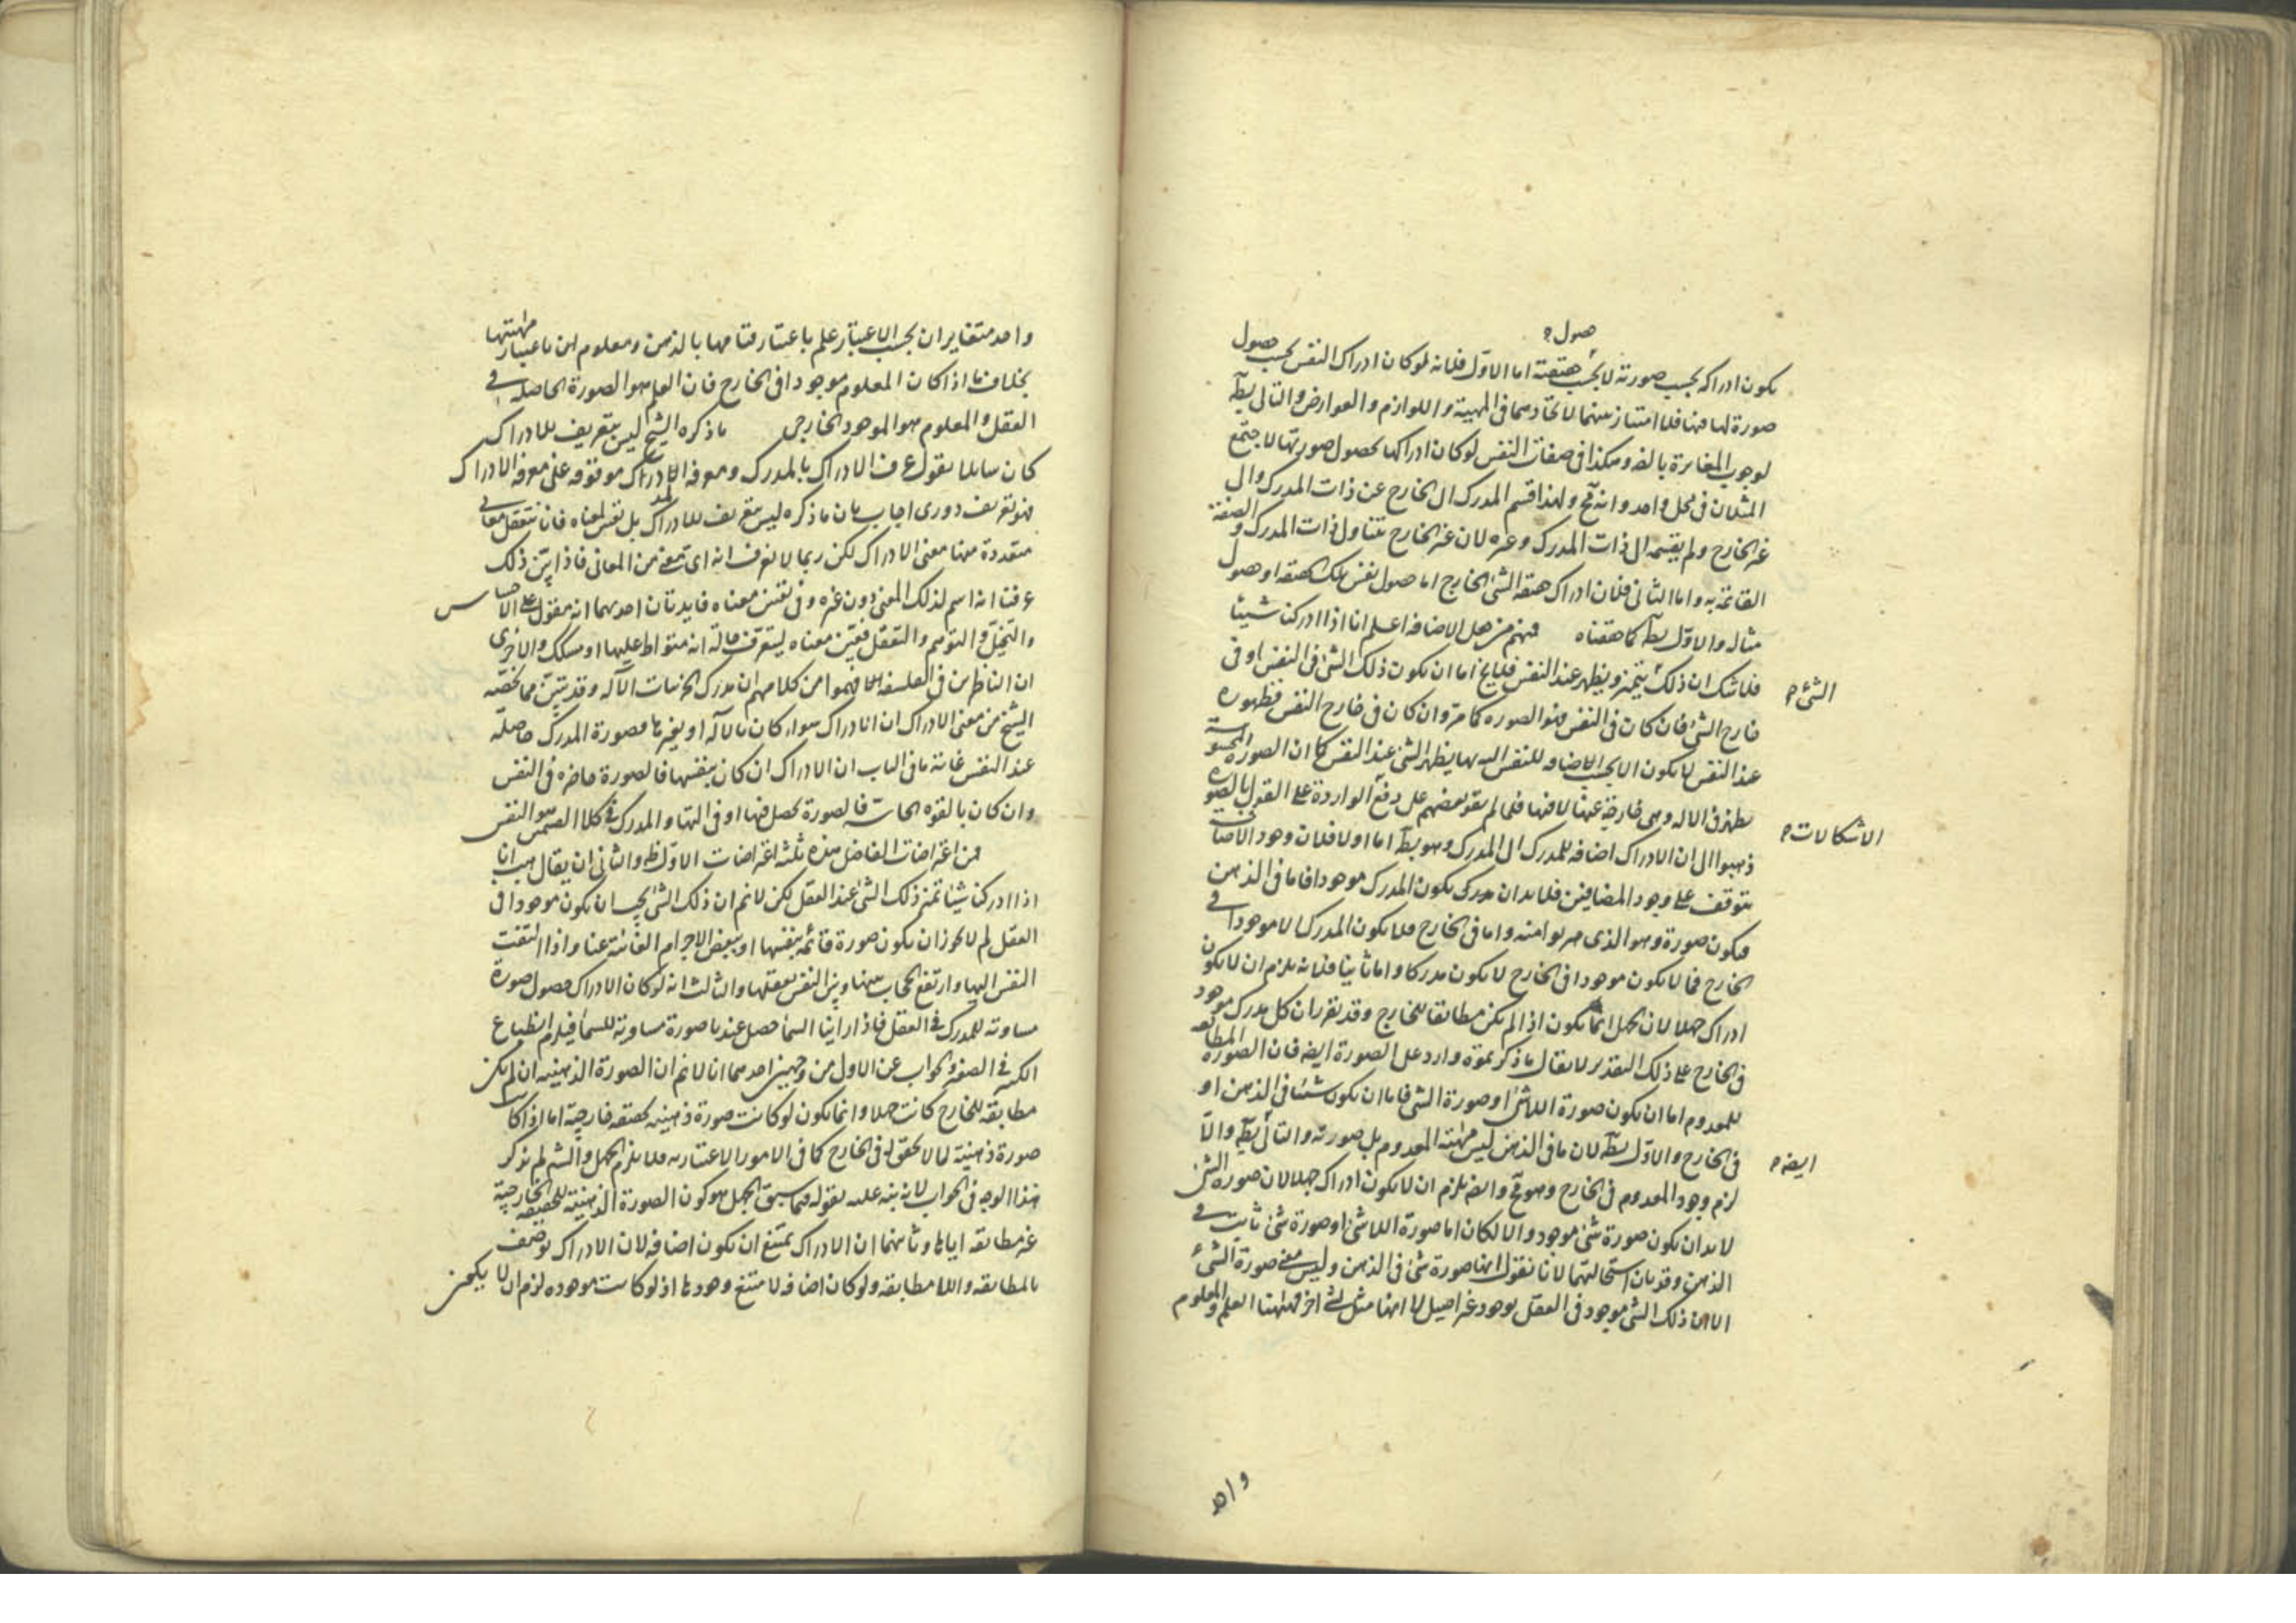 حصول
يكون ادراكه بحسب صورته لا بحسب حقيقته اما الاول فلانه لو كان ادراك النفس بحسب حصول
صورة لها فيها فلا امتياز بينهما لاتحادهما فى المهية واللوازم والعوارض والتالى بط
لوجوب المغايرة بالضه وهكذا فى صفات النفس لو كان ادراكها بحصول صورتها لاجتمع
المثلان فى محل واحد وانه مح ولهذا قسم المدرك الى الخارج عن ذات المدرك والى
غير الخارج ولم يقسمه الى ذات المدرك وغيره لان غير الخارج يتناول ذات المدرك والصفة
القائمة به واما الثانى فلان ادراك حقيقة الشئ الخارج اما حصول نفس تلك الحقيقه او حصول
مثاله والاول بط كما حققناه فمنهم من جعل الاضافه اعلم انا اذا ادركنا شيئا
فلا شك ان ذلك يتميز ويظهر عند النفس فلا يخ اما ان يكون ذلك الشئ فى النفس او فى
الشئ
خارج الشئ فان كان فى النفس فهو الصوره كما مر وان كان فى خارج النفس فظهوره
عند النفس لا يكون الا بحسب الاضافه للنفس اليه بها يظهر الشئ عند النفس كما ان الصورة المحسوسة
يظهر فى الاله وهى خارجة عنها لا فيها فلما لم يقو بعضهم على دفع الواردة على القول بالصورة
الاشكالات
ذهبوا الى ان الادراك اضافه للمدرك الى المدرك وهو بط اما اولا فلان وجود الاضافات
يتوقف على وجود المضافين فلا بد ان يكون المدرك موجودا فاما فى الذهن
فيكون صورة وهو الذى هربوا منه واما فى الخارج فلا يكون المدرك الا موجودا فى
الخارج فما لا يكون موجودا فى الخارج لا يكون مدركا واما ثانيا فلانه يلزم ان لا يكون
ادراك جهلا لان الجهل انما يكون اذا لم يكن مطابقا للخارج وقد تقرر ان كل مدرك موجود
فى الخارج على ذلك التقدير لا يقال ما ذكرتموه وارد على الصورة ايضه فان الصورة المطابقه
للمعدوم اما ان يكون صورة اللاشئ او صورة الشئ فاما ان يكون شيئا فى الذهن او
فى الخارج والاول بط لان ما فى الذهن ليس مهية المعدوم بل صورته والثانى بط والا
ايضه
لزم وجود المعدوم فى الخارج وهو مح وايضه يلزم ان لا يكون ادراك جهلا لان صورة الشئ
لا بد ان يكون صورة شئ موجود والا لكان اما صورة اللاشئ او صورة شئ ثابت فى
الذهن وقد بان استحالتهما لانا نقول انها صورة شئ فى الذهن وليس معنى صورة الشئ
الا ان ذلك الشئ موجود فى العقل بوجود غير اصيل لا انها مثل لشئ اخر فههنا العلم والمعلوم
واحد
واحد متغايران بحسب الاعتبار علم باعتبار قيامها بالذهن ومعلوم باعتبار مهيتها
بخلاف ما اذا كان المعلوم موجودا فى الخارج فان العلم هو الصورة الحاصلة فى
العقل والمعلوم هو الموجود الخارجى ما ذكره الشيخ ليس بتعريف للادراك
كان سايلا يقول عرف الادراك بالمدرك ومعرفة المدرك موقوفه على معرفه الادراك
فهو تعريف دورى اجاب بان ما ذكره ليس بتعريف للادراك بل تفسير لمعناه فانا نتعقل معانى
متعددة منها معنى الادراك لكن ربما لا نعرف انه اى معنى من المعانى فاذا بين ذلك
عرفنا انه اسم لذلك المعنى دون غيره وفى تعيين معناه فايدتان احديهما انه مقول على الاحساس
والتخيل والتوهم والتعقل فتعين معناه ليتعرف حاله انه متواط عليها او مشكك والاخرى
ان الناظرين فى الفلسفه لما فهموا من كلامهم ان مدرك الجزئيات الآله وقد تبين مما لخصه
الشيخ من معنى الادراك ان الادراك سواء كان بالآله او بغيرها فصورة المدرك حاصلة
عند النفس غاية ما فى الباب ان الادراك ان كان بنفسها فالصورة حاضره فى النفس
وان كان بالقوه الحاسة فالصورة تحصل فيها او فى التها والمدرك فى كلا القسمين هو النفس
من اعتراضات الفاضل هذه ثلثه اعتراضات الاول ظ والثانى ان يقال هب انا
اذا ادركنا شيئا تميز ذلك الشئ عند العقل لكن لا نم ان ذلك الشئ يجب ان يكون موجودا فى
العقل لم لا يجوز ان يكون صورة قائمة بنفسها او ببعض الاجرام الغائبة عنا واذا التفت
النفس اليها وارتفع الحجاب بينها وبين النفس يعقلها والثالث انه لو كان الادراك حصول صورة
مساوية للمدرك فى العقل فاذا راينا السما حصل عندنا صورة مساوية للسما فيلزم انطباع
الكبير فى الصغير والجواب عن الاول من وجهين احدهما انا لا نم ان الصورة الذهنيه ان لم يكن
مطابقه للخارج كانت جهلا وانما يكون لو كانت صورة ذهنيه لحقيقه خارجية اما اذا كان
صورة ذهنية لما لا تحقق له فى الخارج كما فى الامور الاعتباريه فلا يلزم الجهل والشيخ لم يذكر
هذا الوجه فى الجواب لانه نبه عليه بقوله فيما سبق الجهل هو كون الصورة الذهنية للحقيقه الخارجية
غير مطابقه اياها وثانيهما ان الادراك يمتنع ان يكون اضافه لان الادراك يوصف
بالمطابقه واللامطابقه ولو كان اضافه لامتنع وجودها اذ لو كانت موجوده لزم ان لا يكون